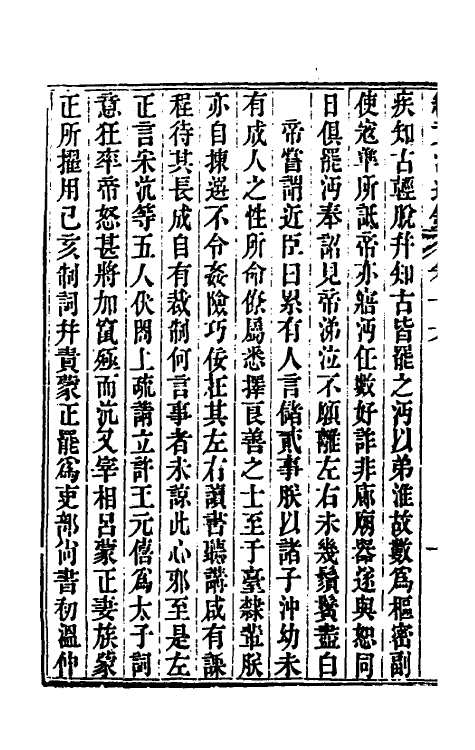 疾知古輕脫幷知古皆罷之沔以弟淮故數爲樞密副
使寇準所詆帝亦寤沔任數好詐非廊廟器遂與恕同
日俱罷沔奉詔見帝涕泣不願離左右未幾鬚鬢盡白
帝嘗謂近臣曰累有人言儲貳事朕以諸子沖幼未
有成人之性所命僚屬悉擇良善之士至于臺隸輩朕
亦自揀選不令姦險巧佞在其左右讀書聽講咸有課
程待其長成自有裁制何言事者未諒此心邪至是左
正言宋沆等五人伏閤上疏請立許王元僖爲太子詞
意狂率帝怒甚將加竄殛而沆又宰相呂蒙正妻族蒙
正所擢用己亥制詞幷責蒙正罷爲吏部尚書初溫仲